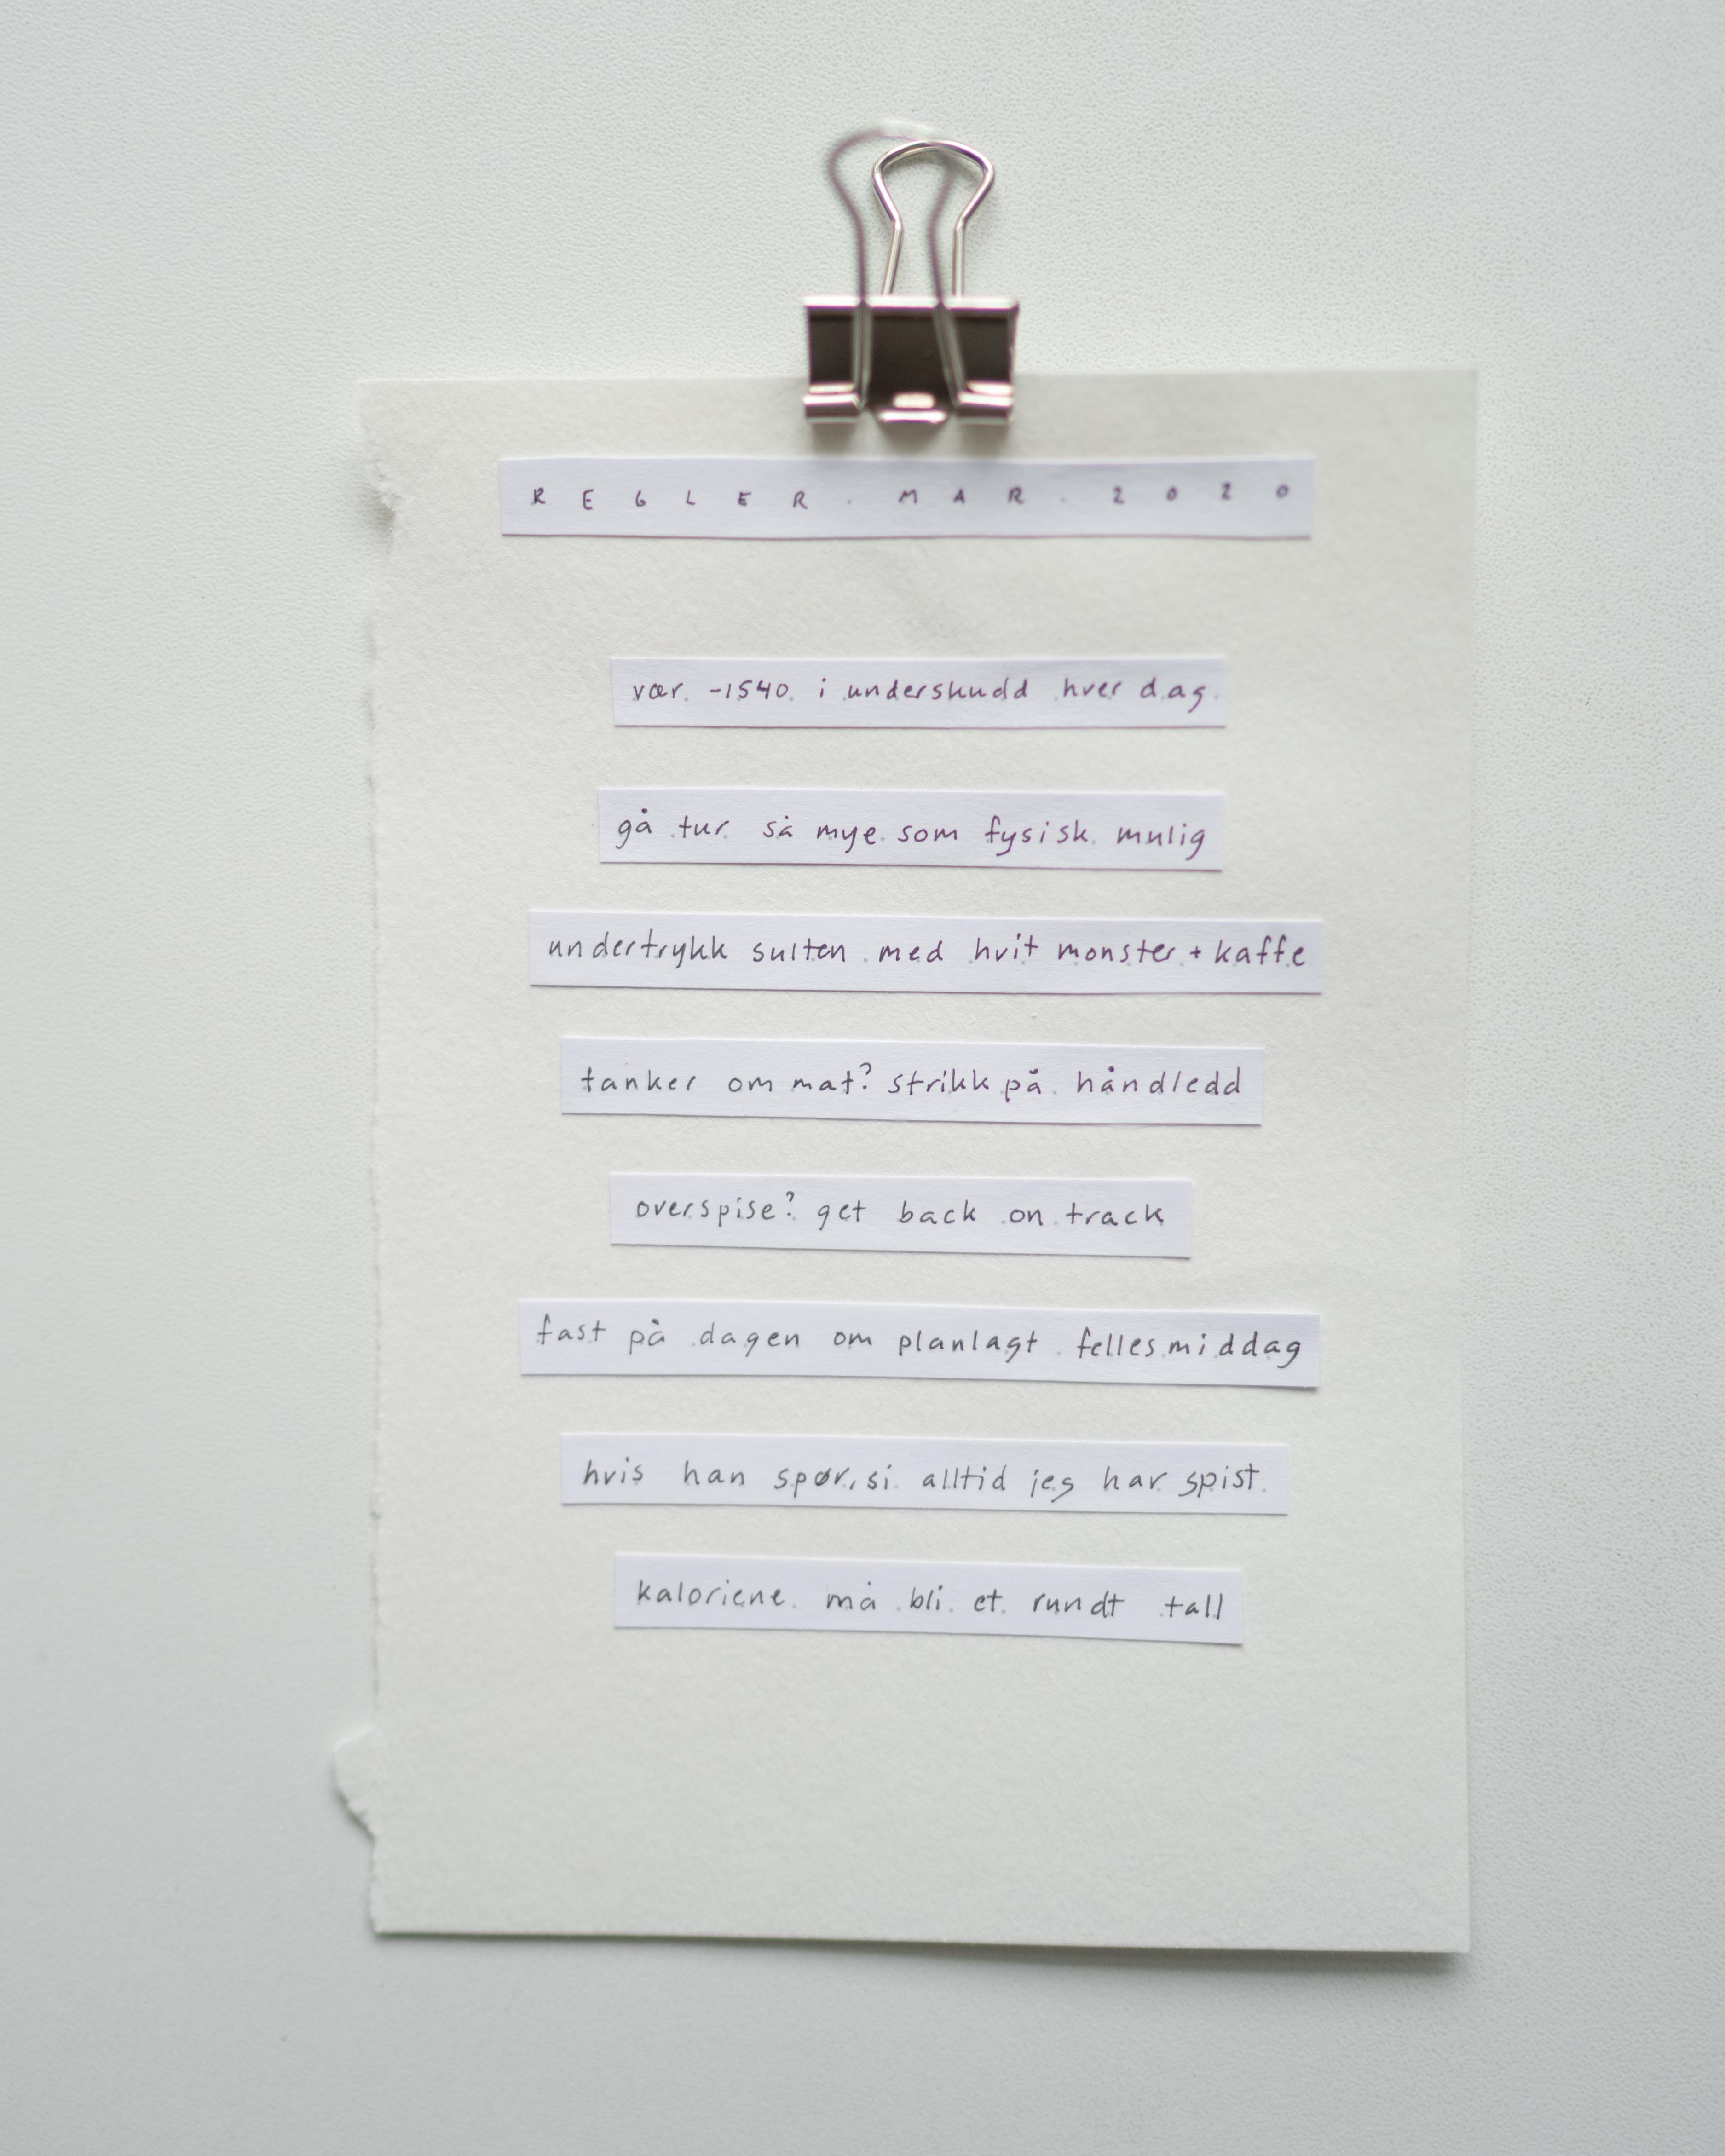 REGLER. MAR. 2020
vær -1540 i underskudd hver dag
gå tur så mye som fysisk mulig
undertrykk sulten med hvit monster + kaffe
tanker om mat? strikk på håndledd
overspise? get back on track
fast på dagen om planlagt fellesmiddag
hvis han spør, si alltid jeg har spist
kaloriene må bli et rundt tall